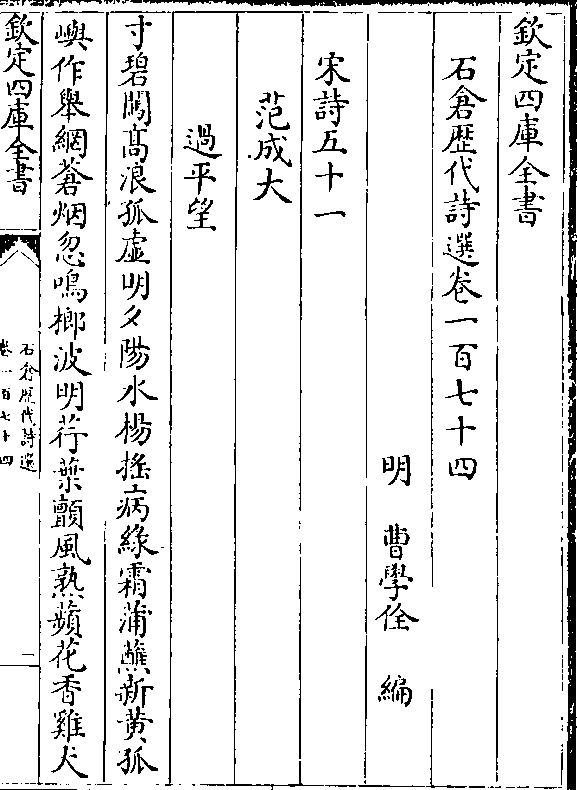 欽定四庫全書
石倉歷代詩選卷一百七十四
明 曹學佺 編
宋詩五十一
范成大
過平望
寸碧闖髙浪孤虚明夕陽水楊揺病緑霜蒲蘸新黄孤
嶼作舉網蒼烟忽鳴榔波明荇葉顫風熟蘋花香雞犬
欽定四庫全書
石倉歷代詩選
卷一百七十四
一